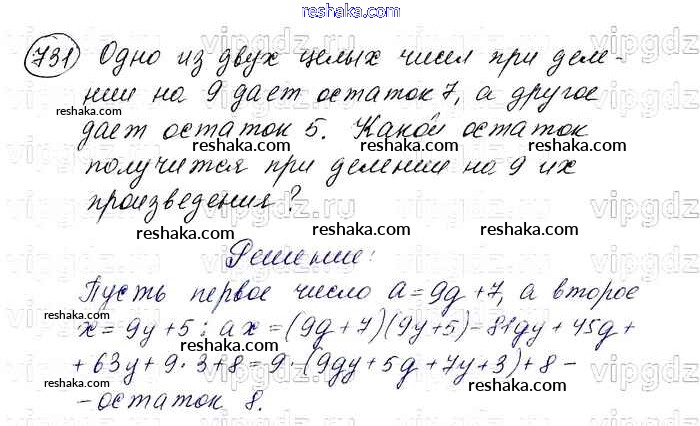 reshaka.com
731 Одно из двух целых чисел при деле-
нии на 9 дает остаток 7, а другое
reshaka.com reshaka.com
дает остаток 5. Какой остаток
получится при делении на 9 их
reshaka.com reshaka.com
произведения?
reshaka.com reshaka.com
Решение:
Пусть первое число a=9g+7, а второе
x=9y+5; ax=(9g+7)(9y+5)=81gy+45g+
reshaka.com reshaka.com
+63y+9·3+8=9·(9gy+5g+7y+3)+8-
reshaka.com reshaka.com
-остаток 8.
reshaka.com
vipgdz.ru